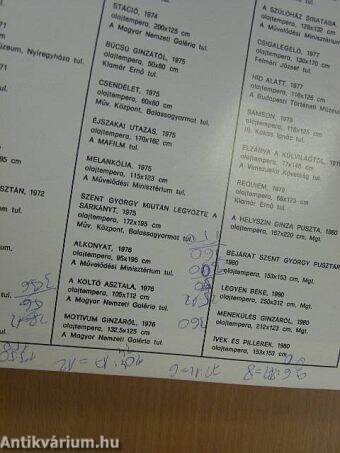 STÁCIÓ, 1974
olajtempera, 200x125 cm
A Magyar Nemzeti Galéria tul.
BÚCSÚ GINZÁTÓL, 1975
olajtempera, 50x80 cm
Klamár Ernő tul.
CSENDÉLET, 1975
olajtempera, 60x80 cm
Műv. Központ, Balassagyarmat tul.
ÉJSZAKAI UTAZÁS, 1975
olajtempera, 170x162 cm
A MAFILM tul.
MELANKÓLIA, 1975
olajtempera, 115x123 cm
A Művelődési Minisztérium tul.
SZENT GYÖRGY MIUTÁN LEGYŐZTE A
SÁRKÁNYT, 1975
olajtempera, 172x195 cm
Műv. Központ, Balassagyarmat tul.
ALKONYAT, 1976
olajtempera, 95x195 cm
A Művelődési Minisztérium tul.
A KÖLTŐ ASZTALA, 1976
olajtempera, 106x112 cm
A Magyar Nemzeti Galéria tul.
MOTÍVUM GINZÁRÓL, 1976
olajtempera, 132,5x125 cm
A Magyar Nemzeti Galéria tul.
A SZÜLŐHÁZ SIRATÁSA
olajtempera, 128x132 cm
A Művelődési Minisztérium
CSIGALEGELŐ, 1977
olajtempera, 130x170 cm
Felmér József tul.
HÍD ALATT, 1977
olajtempera, 118x125 cm
A Budapesti Történeti Múze
SÁMSON, 1978
olajtempera, 118x125 cm
ELZÁRVA A KÜLVILÁGTÓL, 1979
A Venezuelai Követség tul.
REQUIEM, 1979
olajtempera, 66x123 cm
Klamár Ernő tul.
A HELYSZÍN GINZA PUSZTA, 1980
olajtempera, 167x220 cm, Mgt.
BEJÁRAT SZENT GYÖRGY PUSZTÁR
1980
olajtempera, 153x153 cm, Mgt.
LEGYEN BÉKE, 1980
olajtempera, 250x312 cm, Mgt.
MENEKÜLÉS GINZÁRÓL, 1980
olajtempera, 212x123 cm, Mgt.
ÍVEK ÉS PILLÉREK, 1980
olajtempera, 153x153 cm
úzeum, Nyíregyháza tul.
SZTÁN, 1972
360
Antikvárium.hu